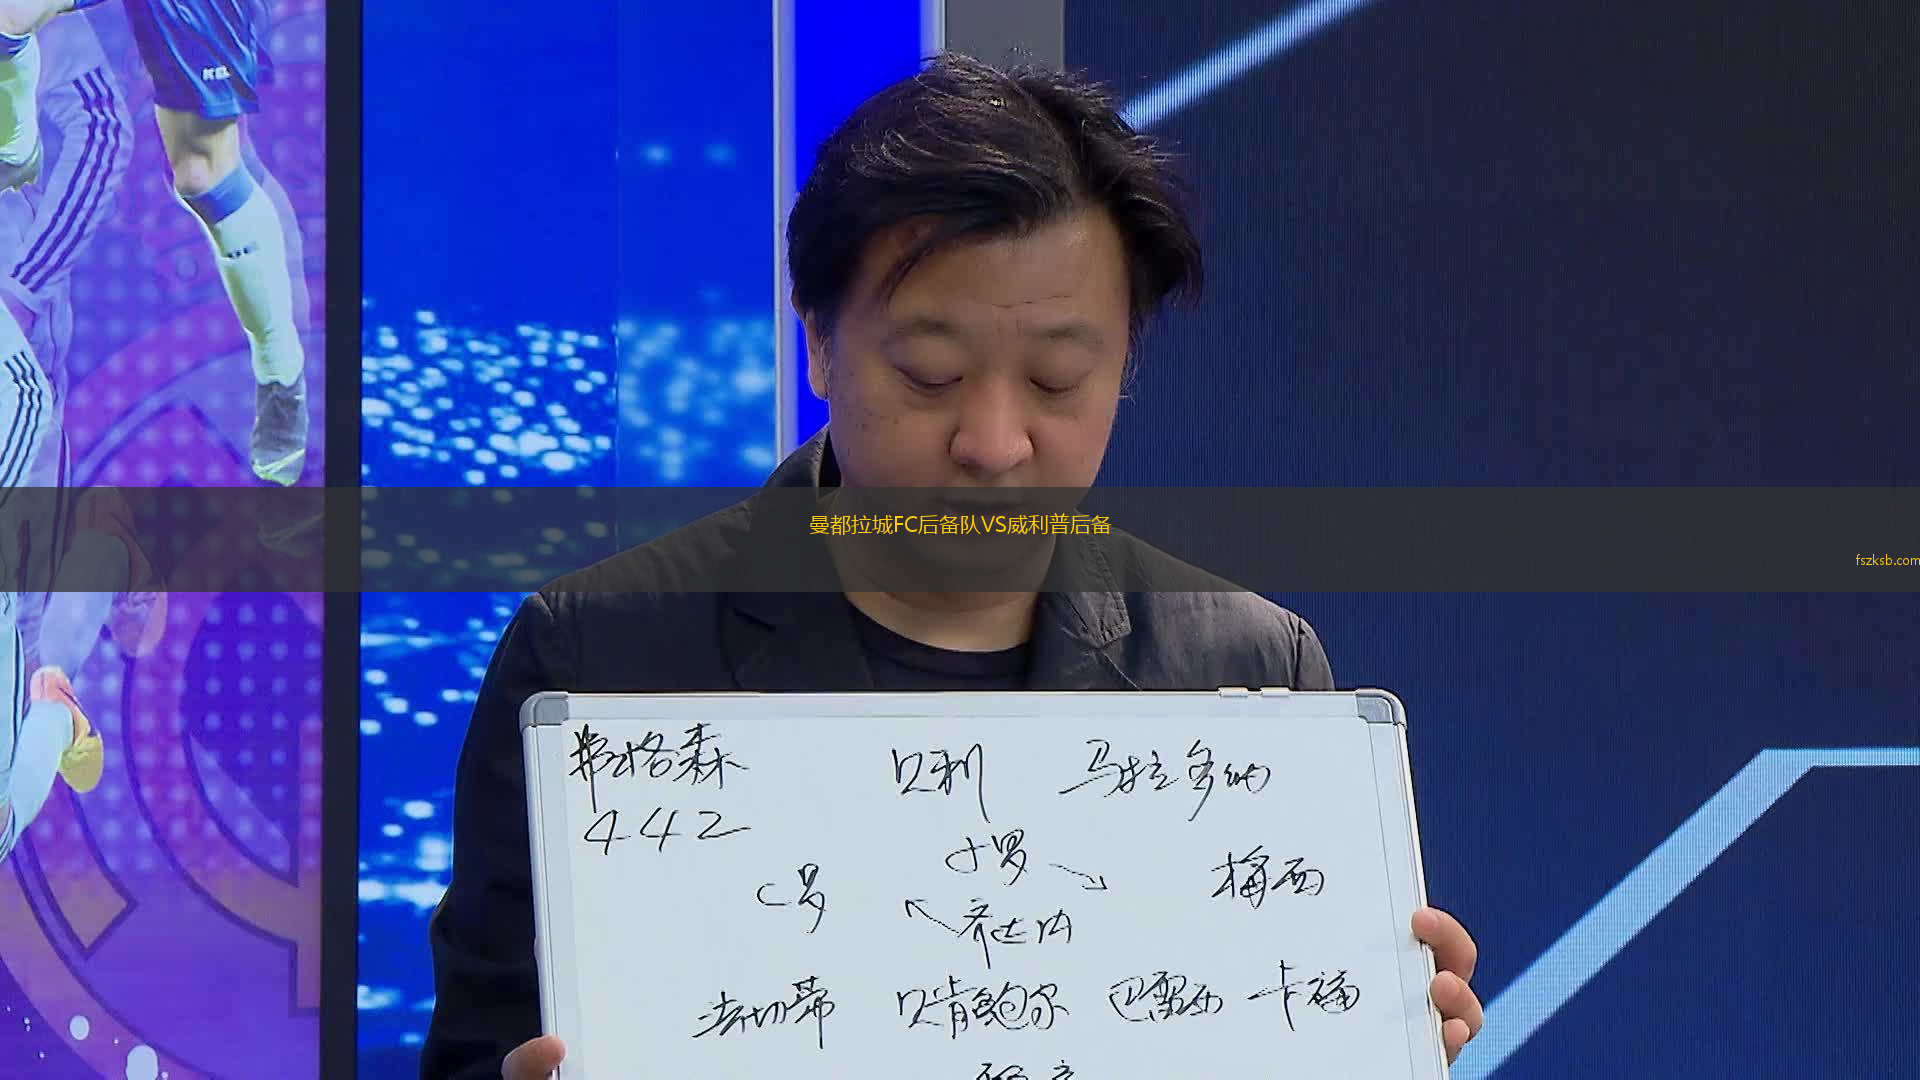 曼都拉城FC后备队VS威利普后备
fszksb.com
弗格森 贝利 马拉多纳
442
小罗
C罗 梅西
齐达内
法切蒂 贝肯鲍尔 巴雷西 卡福